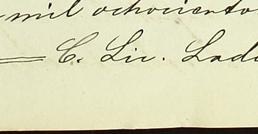 mil ochociento
C. Lic. Lad